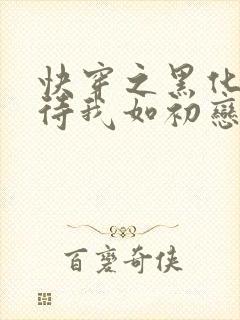 快穿之黑化
待我如初戀
百磨奇俠